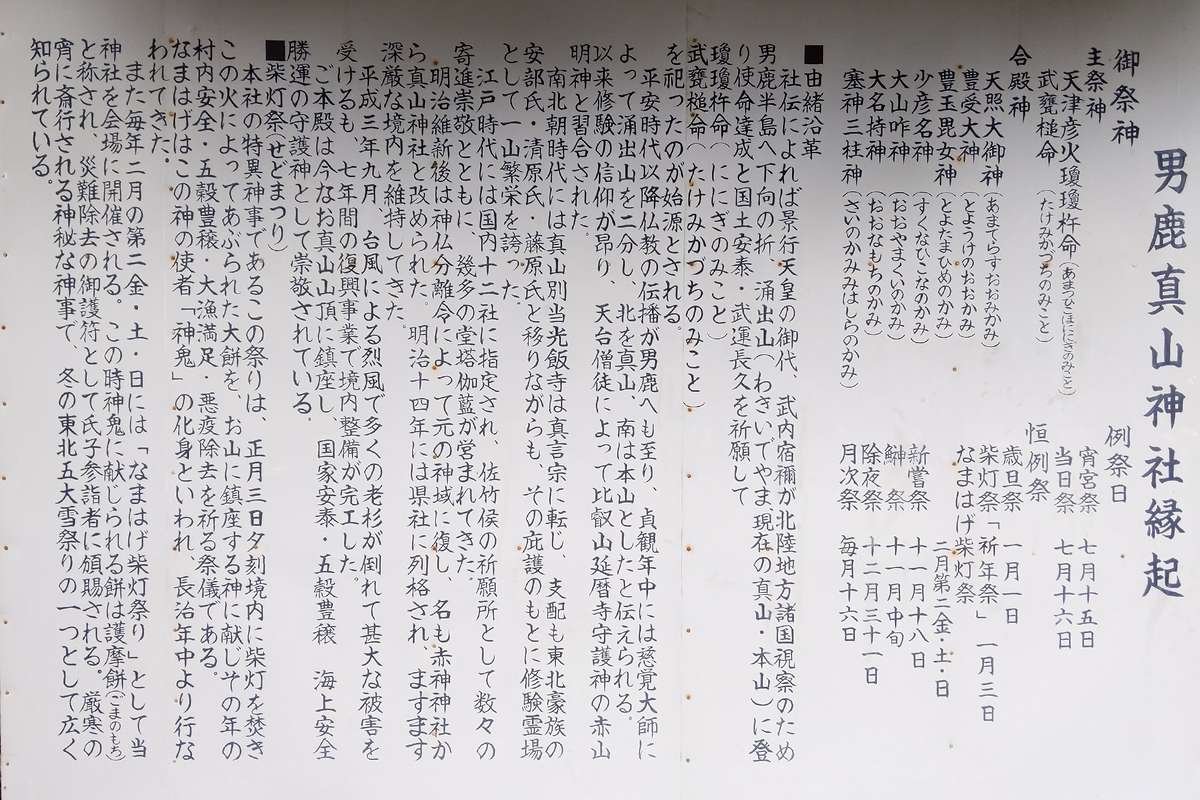 男鹿真山神社縁起
御祭神
主祭神
天津彦火瓊瓊杵命(あまつひこほににぎのみこと)
武甕槌命(たけみかづちのみこと)
合殿神
天照大御神(あまてらすおおみかみ)
豊受大神(とようけのおおかみ)
豊玉毘女神(とよたまひめのかみ)
少彦名神(すくなひこなのかみ)
大山咋神(おおやまくいのかみ)
大名持神(おおなもちのかみ)
塞神三柱神(さいのかみみはしらのかみ)
例祭日
宵宮祭 七月十五日
当日祭 七月十六日
恒例祭
歳旦祭 一月一日
柴灯祭「祈年祭」一月三日
なまはげ柴灯祭
二月第二金・土・日
新嘗祭 十一月十八日
鰰祭 十一月中旬
除夜祭 十二月三十一日
月次祭 毎月十六日
■由緒沿革
社伝によれば景行天皇の御代、武内宿禰が北陸地方諸国視察のため
男鹿半島へ下向の折、涌出山(わきいでやま、現在の真山・本山)に登
り使命達成と国土安泰・武運長久を祈願して
瓊瓊杵命(ににぎのみこと)
武甕槌命(たけみかづちのみこと)
を祀ったのが始源とされる。
平安時代以降仏教の伝播が男鹿へも至り、貞観年中には慈覚大師に
よって涌出山を二分し、北を真山、南は本山としたと伝えられる。
以来修験の信仰が昂り、天台僧徒によって比叡山延暦寺守護神の赤山
明神と習合された。
南北朝時代には真山別当光飯寺は真言宗に転じ、支配も東北豪族の
安部氏・清原氏・藤原氏と移りながらも、その庇護のもとに修験霊場
として一山繁栄を誇った。
江戸時代には国内十二社に指定され、佐竹侯の祈願所として数々の
寄進崇敬とともに、幾多の堂塔伽藍が営まれてきた。
明治維新後は神仏分離令によって元の神域に復し、名も赤神神社か
ら真山神社と改められた。明治十四年には県社に列格され、ますます
深厳な境内を維持してきた。
平成三年九月、台風による烈風で多くの老杉が倒れて甚大な被害を
受けるも、七年間の復興事業で境内整備が完工した。
ご本殿は今なお真山山頂に鎮座し、国家安泰・五穀豊穣 海上安全
勝運の守護神として崇敬されている。
■柴灯祭(せどまつり)
本社の特異神事であるこの祭りは、正月三日夕刻境内に柴灯を焚き
この火によってあぶられた大餅を、お山に鎮座する神に献じその年の
村内安全・五穀豊穣・大漁満足・悪疫除去を祈る祭儀である。
なまはげはこの神の使者「神鬼」の化身といわれ、長治年中より行な
われてきた。
また毎年二月の第二金・土・日には「なまはげ柴灯祭り」として当
神社を会場に開催される。この時神鬼に献じられる餅は護摩餅(ごまのもち)
と称され、災難除去の御護符として氏子参詣者に頒賜される。厳寒の
宵に斎行される神秘な神事で、冬の東北五大雪祭りの一つとして広く
知られている。